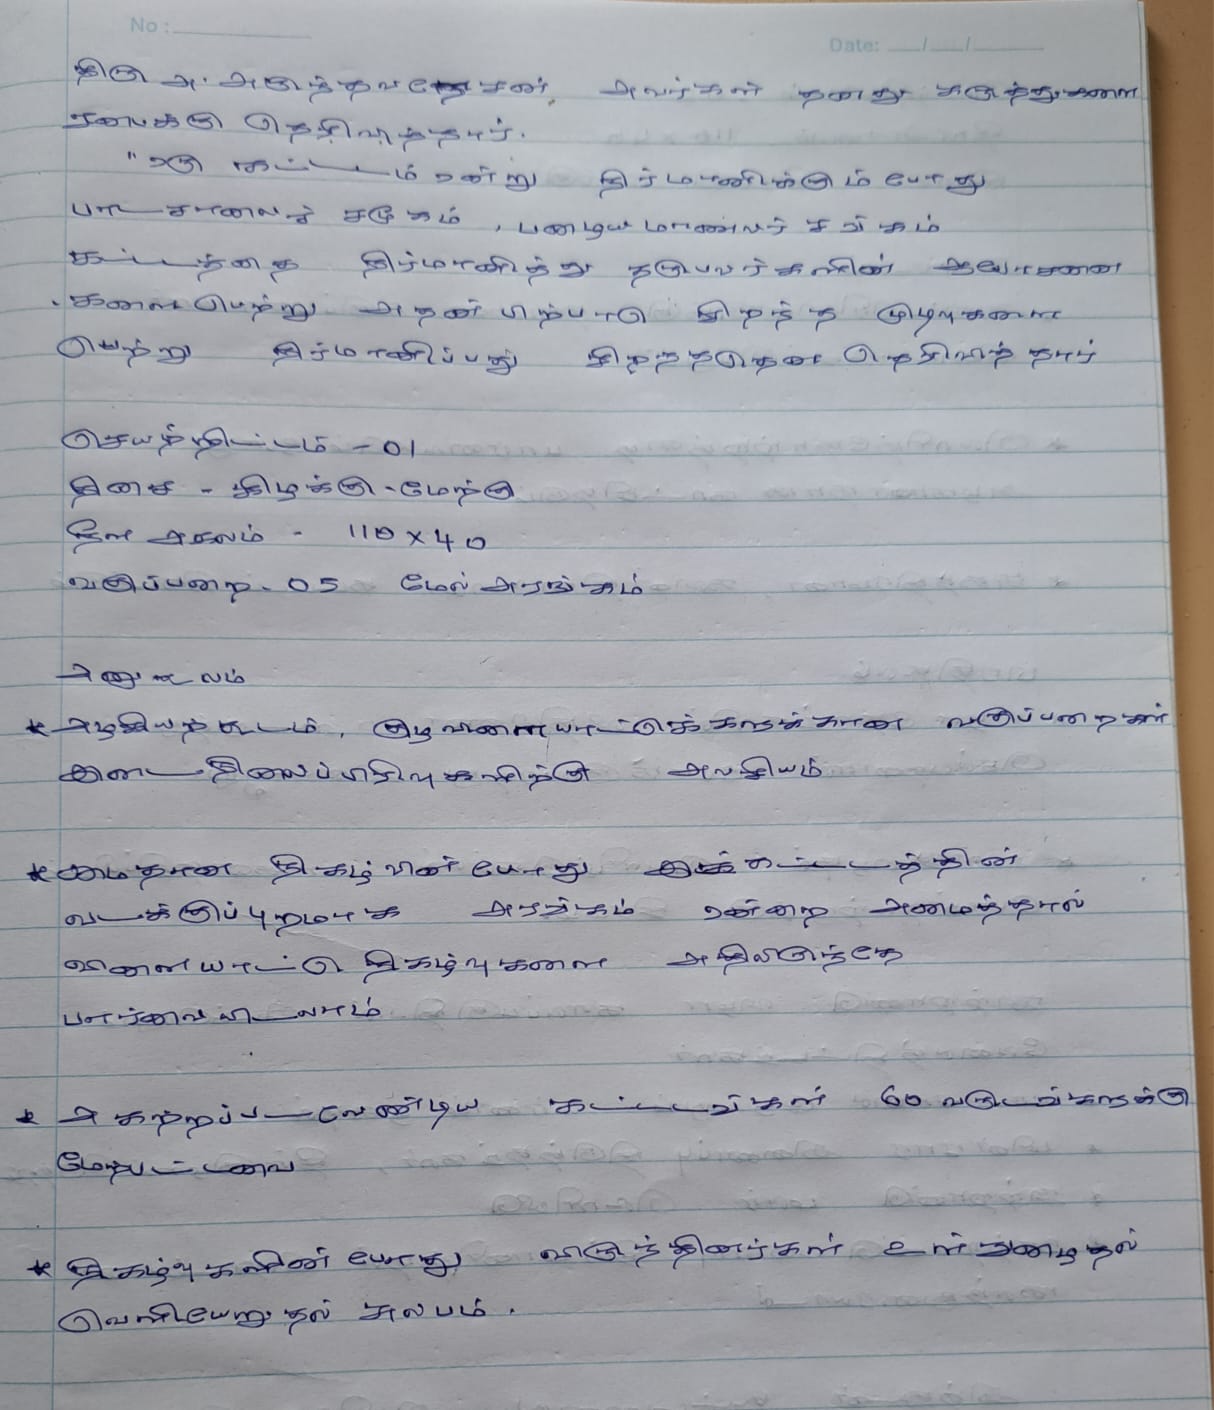 No :
Date: __/__/__
திரு அ. அருந்தவநேசன், அவர்கள் தனது கருத்துகளை
சபைக்கு தெரிவித்தார்.
"ஒரு கட்டடம் ஒன்று நிர்மாணிக்கும் போது
பாடசாலைச் சமூகம், பழைய மாணவர் சங்கம்
கட்டத்தை நிர்மாணித்து தருபவர்களின் ஆலோசனை
களை பெற்று அதன் பிற்பாடு சிறந்த முடிவுகளை
பெற்று நிர்மாணிப்பது சிறந்ததென தெரிவித்தார்
செயற்றிட்டம் - 01
திசை - கிழக்கு - மேற்கு
நீள அகலம் - 110 x 40
வகுப்பறை - 05 மேல் அரங்கம்
அனுகூலம்
* அழகியற்கூடம், குழவிளையாட்டுக்களுக்கான வகுப்பறைகள்
இடைநிலைப்பிரிவுகளிற்கு அவசியம்
* மைதான நிகழ்வின் போது இக்கட்டடத்தின்
வடக்குப்புறமாக அரங்கம் ஒன்றை அமைத்தால்
விளையாட்டு நிகழ்வுகளை அதிலிருந்தே
பார்வையிடலாம்
* அகற்றப்படவேண்டிய கட்டடங்கள் 60 வருடங்களுக்கு
மேற்பட்டவை
* நிகழ்வுகளின் போது விருந்தினர்கள் உள் நுழைதல்
வெளியேறுதல் சுலபம்.